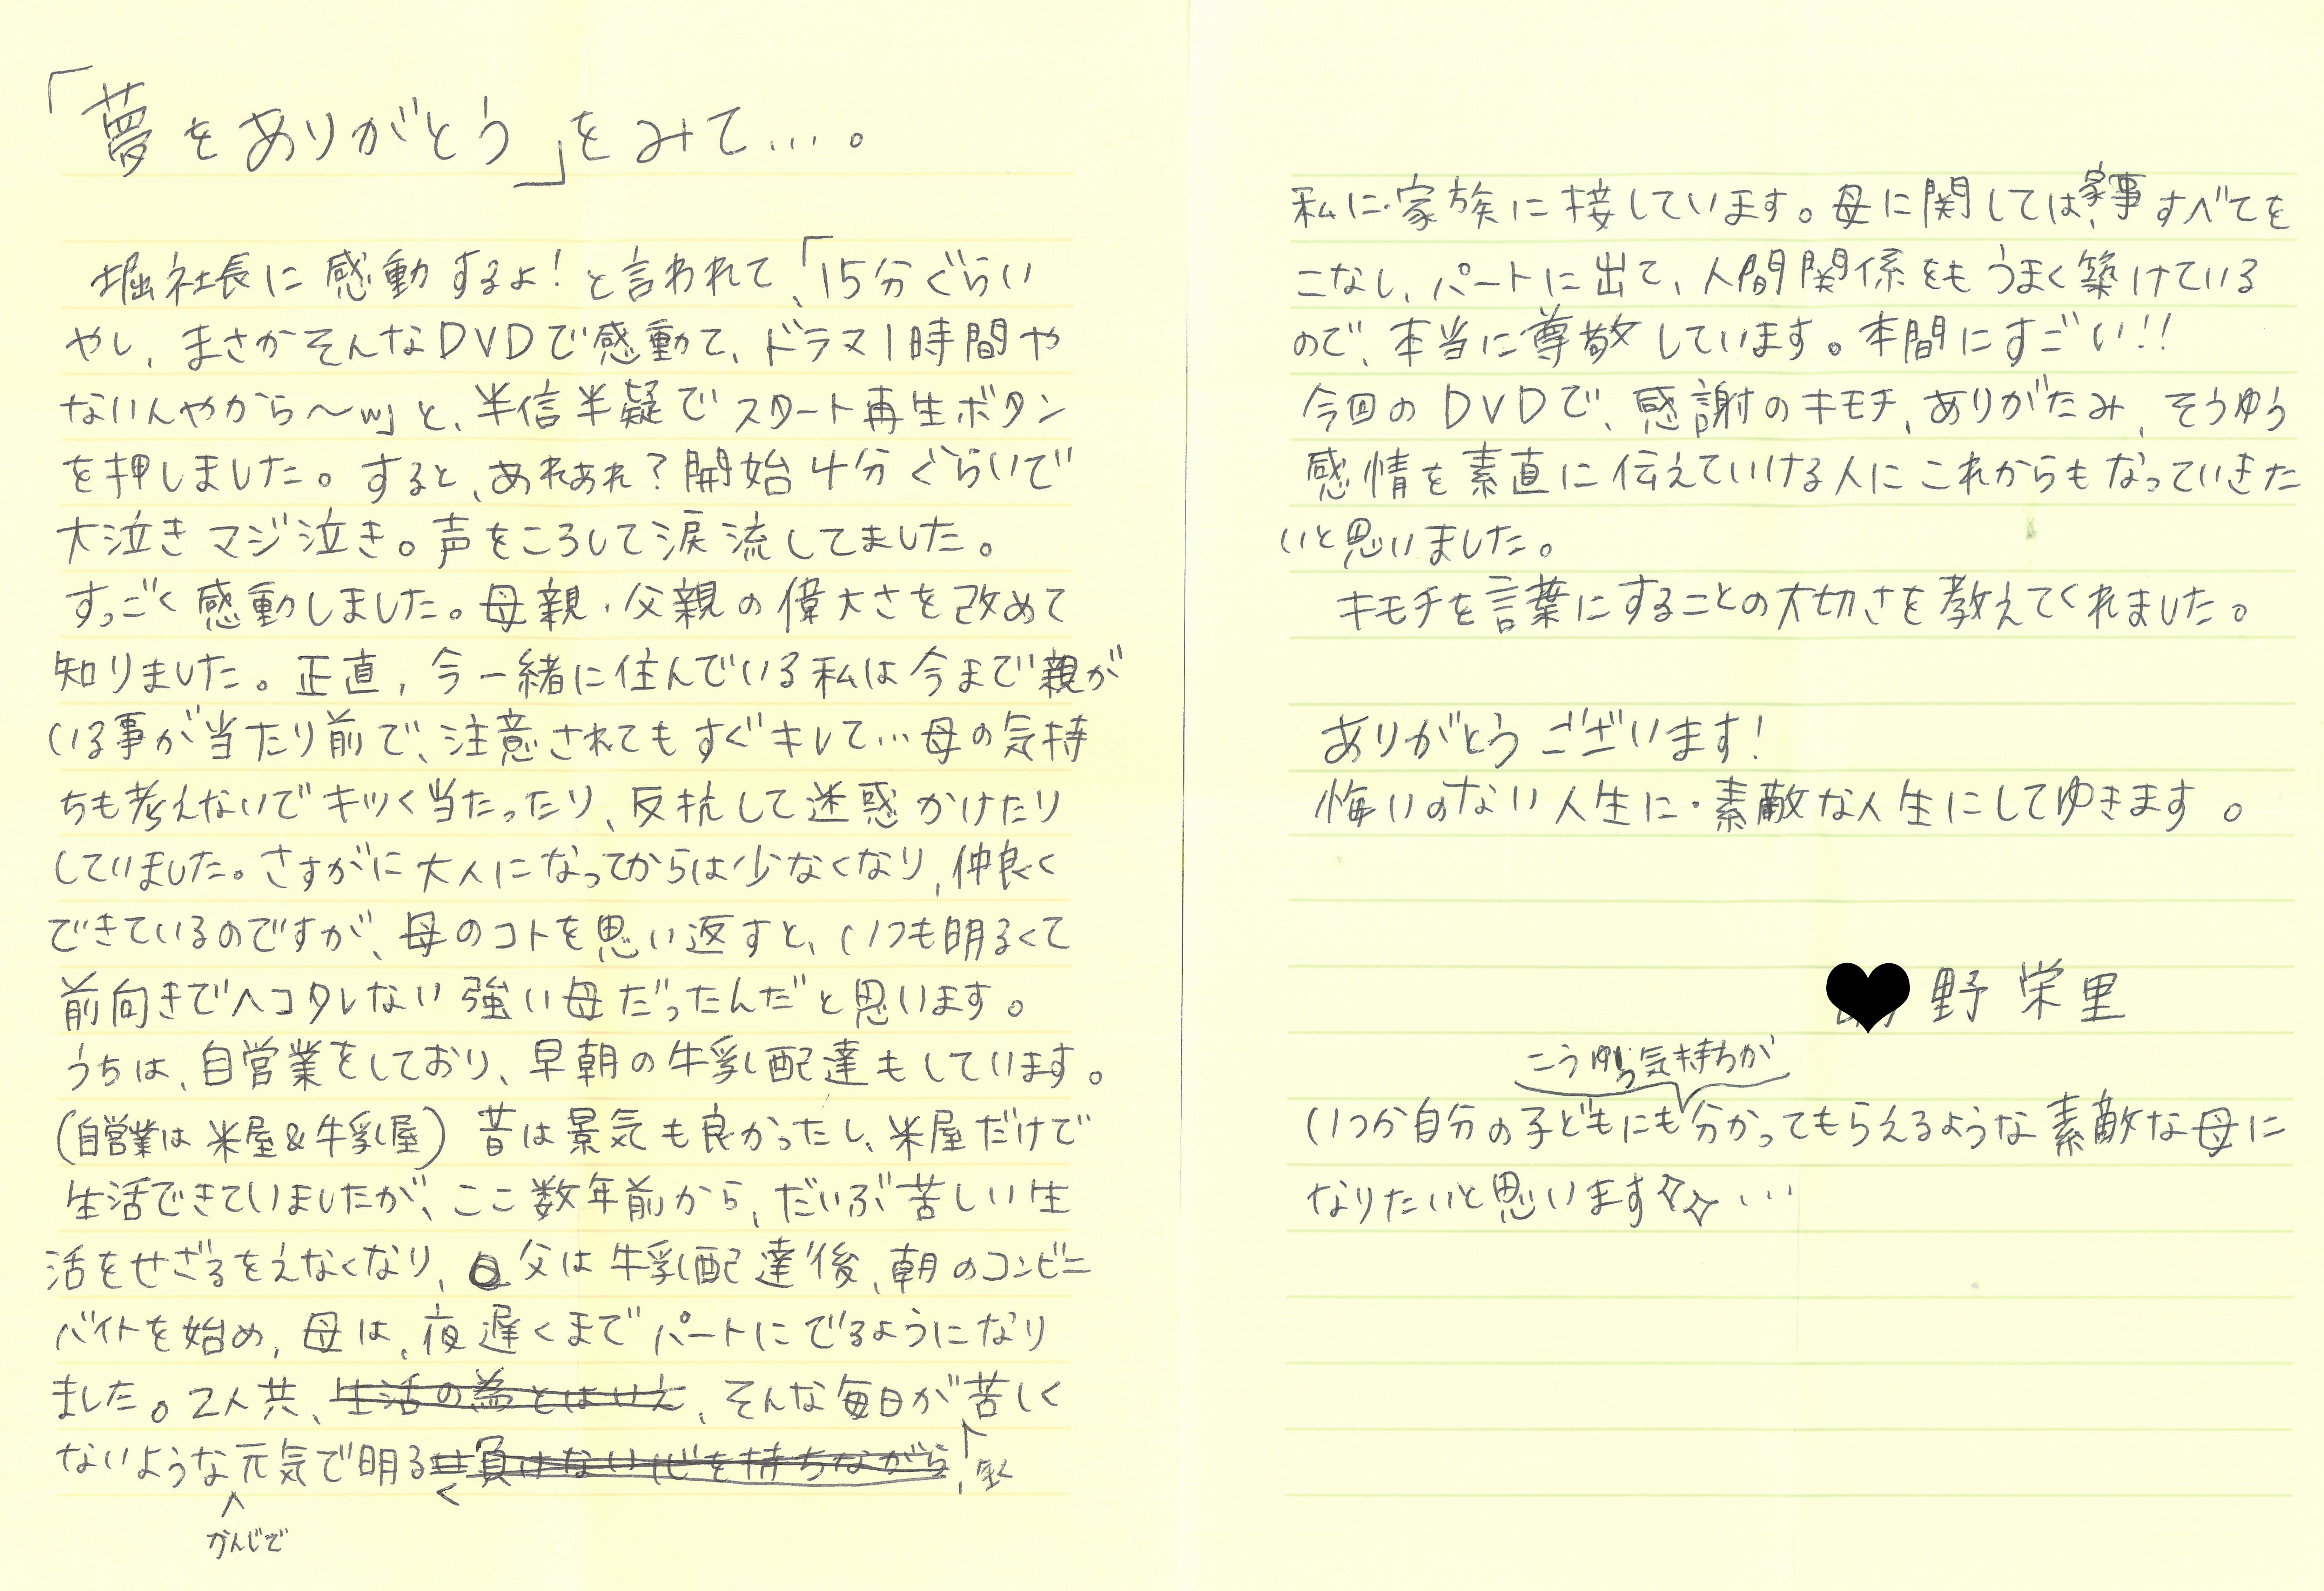 「夢をありがとう」をみて…。
堀社長に感動するよ!と言われて、「15分ぐらい
やし、まさかそんなDVDで感動て、ドラマ1時間や
ないんやから〜w」と、半信半疑でスタート再生ボタン
を押しました。すると、あれあれ?開始4分ぐらいで
大泣きマジ泣き。声をころして涙流してました。
すっごく感動しました。母親・父親の偉大さを改めて
知りました。正直、今一緒に住んでいる私は今まで親が
いる事が当たり前で、注意されてもすぐキレて…母の気持
ちも考えないでキツく当たったり、反抗して迷惑かけたり
していました。さすがに大人になってからは少なくなり、仲良く
できているのですが、母のコトを思い返すと、いつも明るくて
前向きでヘコタレない強い母だったんだと思います。
うちは、自営業をしており、早朝の牛乳配達もしています。
(自営業は米屋&牛乳屋)昔は景気も良かったし、米屋だけで
生活できていましたが、ここ数年前から、だいぶ苦しい生
活をせざるをえなくなり、父は牛乳配達後、朝のコンビニ
バイトを始め、母は、夜遅くまでパートにでるようになり
ました。2人共、生活の為とはいえ、そんな毎日が苦しく
ないような元気で明る 負けない心を持ちながら、全く
く
かんじで
私に・家族に接しています。母に関しては、家事すべてを
こなし、パートに出て、人間関係をもうまく築けている
ので、本当に尊敬しています。本間にすごい!!
今回のDVDで、感謝のキモチ、ありがたみ、そうゆう
感情を素直に伝えていける人にこれからもなっていきた
いと思いました。
キモチを言葉にすることの大切さを教えてくれました。
ありがとうございます!
悔いのない人生に・素敵な人生にしてゆきます。
野 栄里
こうゆう気持ちが
いつか自分の子どもにも分かってもらえるような素敵な母に
なりたいと思います☆☆…